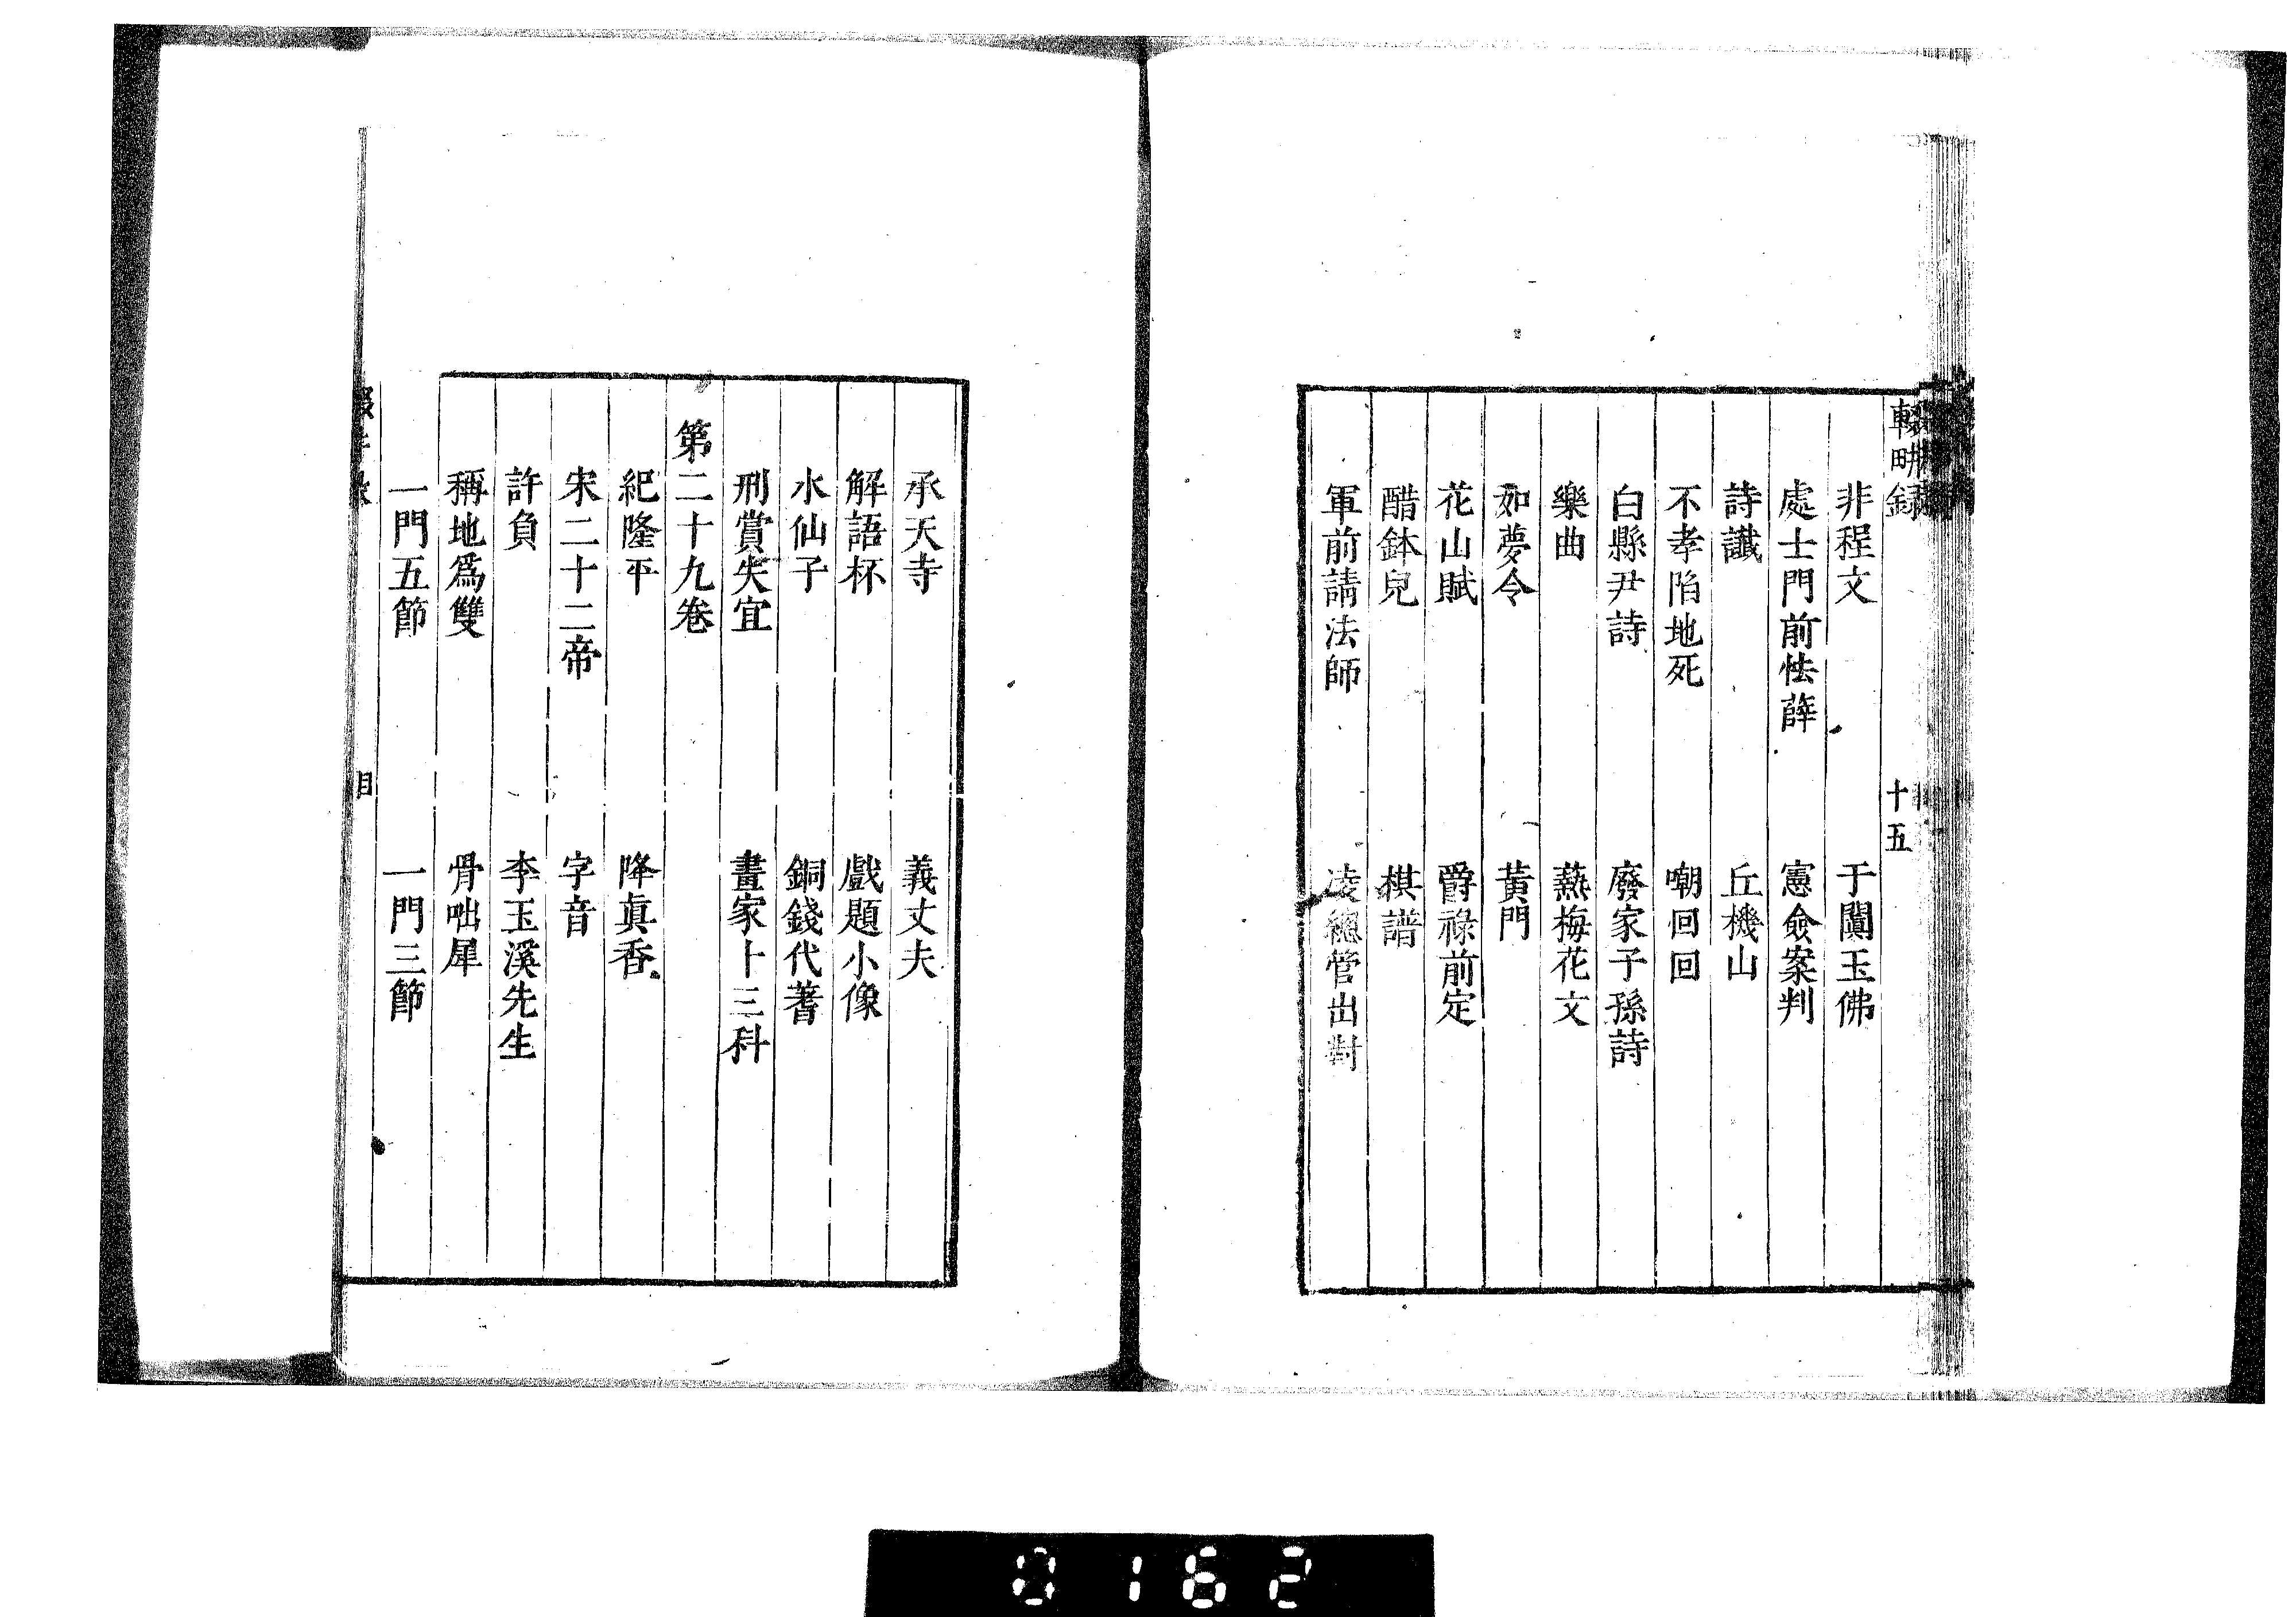 輟畊録
十五
非程文　于闐玉佛
處士門前怯薛　憲僉案判
詩讖　丘機山
不孝陷地死　嘲回回
白縣尹詩　廢家子孫詩
樂曲　爇梅花文
如夢令　黃門
花山賦　爵祿前定
醋鉢兒　棋譜
軍前請法師　凌總管出對
承天寺　義丈夫
解語杯　戲題小像
水仙子　銅錢代蓍
刑賞失宜　畫家十三科
第二十九卷
紀隆平　降眞香
宋二十二帝　字音
許負　李玉溪先生
稱地爲雙　骨咄犀
一門五節　一門三節
目
0162